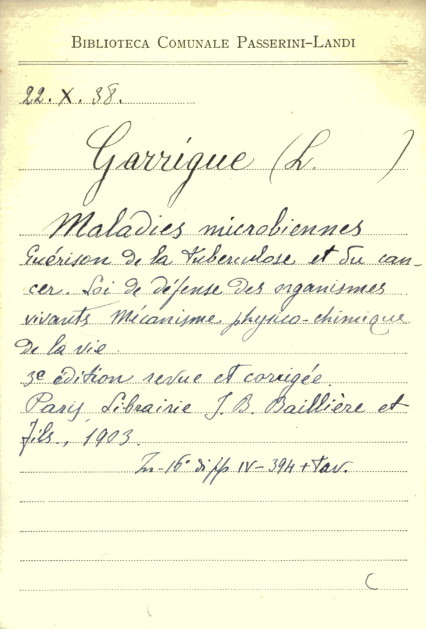 BIBLIOTECA COMUNALE PASSERINI-LANDI
22. X. 38.
Garrigue (L. )
Maladies microbiennes
Guérison de la tuberculose et du can-
cer. Loi de défense des organismes
vivants Mécanisme physico-chimique
de la vie.
3e édition revue et corrigée.
Paris Librairie J. B. Baillière et
fils, 1903.
In-16° diff IV-394 + tav.
C